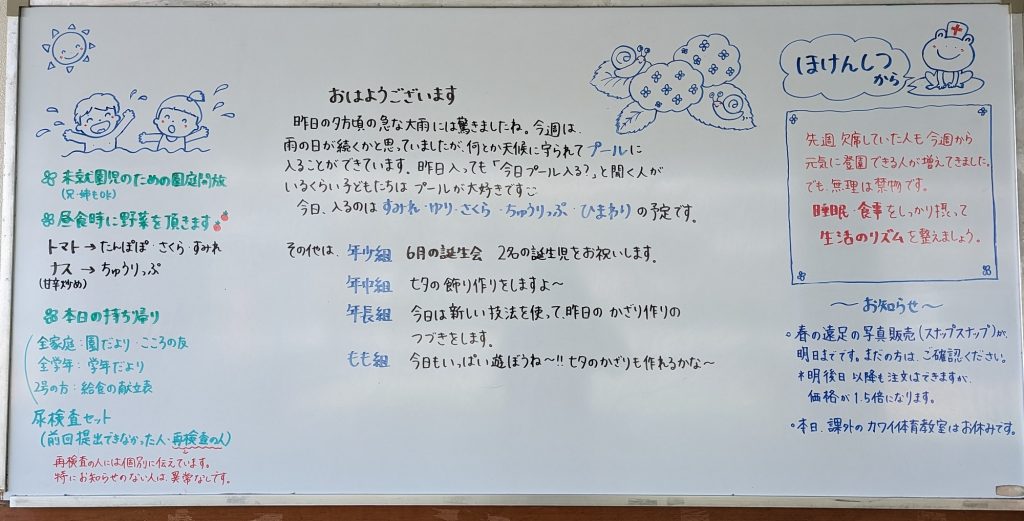 おはようございます
昨日の夕方頃の急な大雨には驚きましたね。今週は、
雨の日が続くかと思っていましたが、何とか天候に守られてプールに
入ることができています。昨日入っても「今日プール入る?」と聞く人が
いるくらい子どもたちはプールが大好きです
今日、入るのはすみれ・ゆり・さくら・ちゅうりっぷ・ひまわりの予定です。
その他は、年少組 6月の誕生会 2名の誕生児をお祝いします。
年中組 七夕の飾り作りをしますよ〜
年長組 今日は新しい技法を使って、昨日のかざり作りの
つづきをします。
もも組 今日もいっぱい遊ぼうね〜!! 七夕のかざりも作れるかな〜
未就園児のための園庭開放
(兄・姉もok)
昼食時に野菜を頂きます
トマト→たんぽぽ・さくら・すみれ
ナス→ちゅうりっぷ
(甘辛炒め)
本日の持ち帰り
全家庭:園だより こころの友
全学年:学年だより
2号の方:給食の献立表
尿検査セット
(前回提出できなかった人・再検査の人)
再検査の人には個別に伝えています。
特にお知らせのない人は、異常なしです。
ほけんしつ
から
先週欠席していた人も今週から
元気に登園できる人が増えてきました。
でも、無理は禁物です。
睡眠・食事をしっかり摂って
生活のリズムを整えましょう。
〜お知らせ〜
。春の遠足の写真販売(スナップスナップ)が、
明日までです。まだの方は、ご確認ください。
*明後日以降も注文はできますが、
価格が1.5倍になります。
。本日、課外のカワイ体育教室はお休みです。